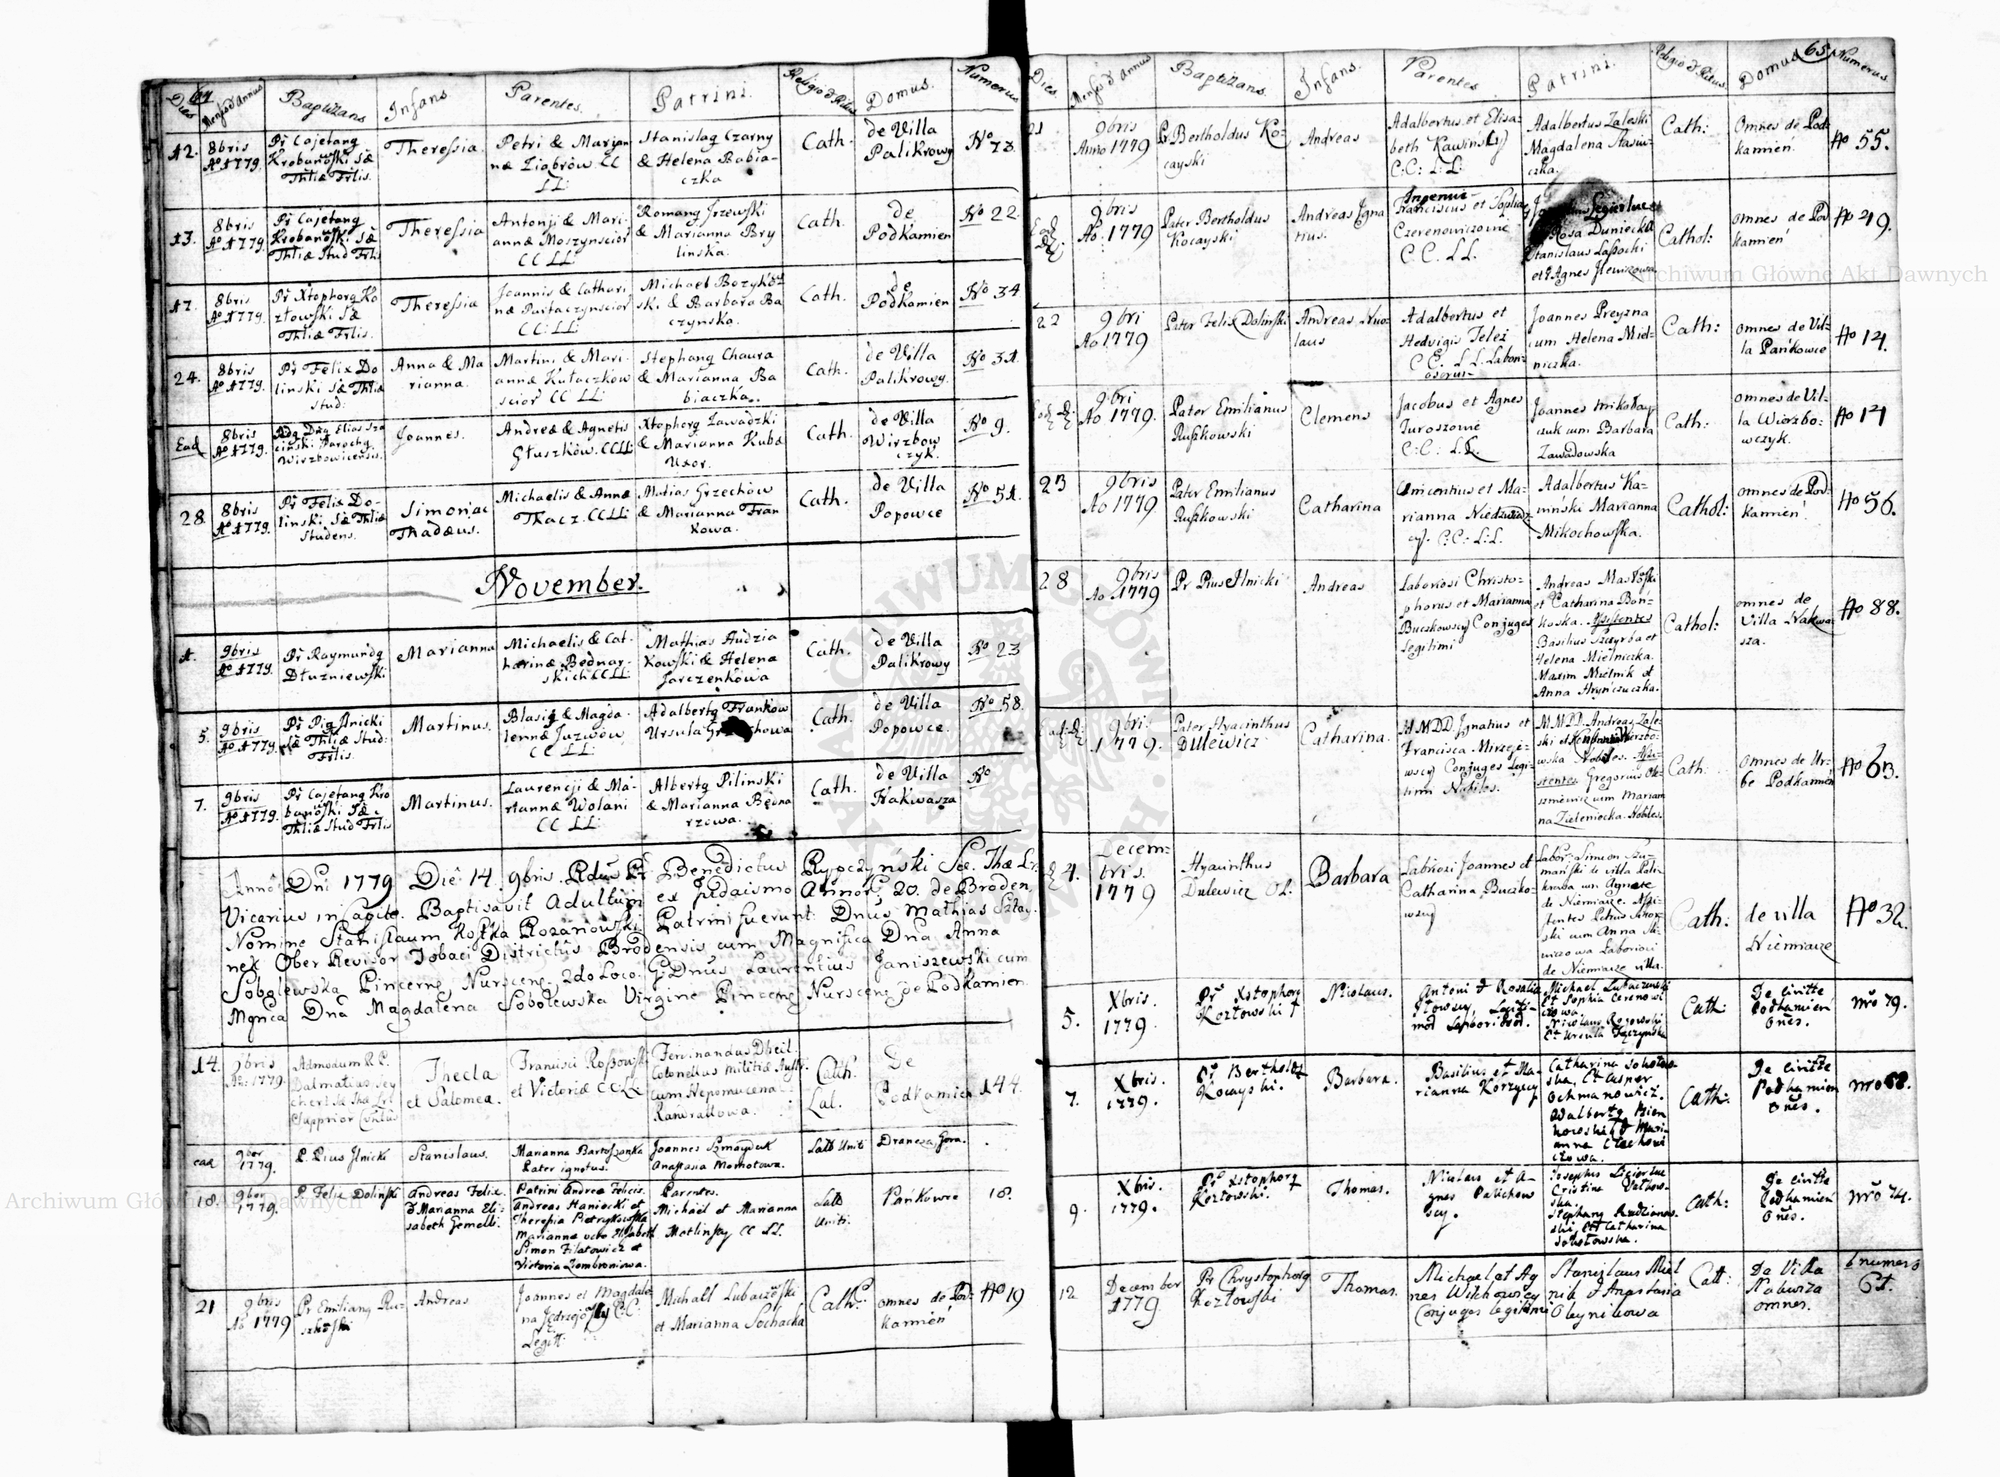 64
Dies
Mensis & Annus
Baptizans
Infans.
Parentes.
Patrini.
Religio & Ritus
Domus.
Numerus
12.
8bris
Aº 1779.
Pr Cajetang
Krobanoski Sæ
Thliæ Frlis.
Theressia
Petri & Marian
næ Ziabrów CC
LL:
Stanislag Czarny
& Helena Babia-
czka
Cath.
de Villa
Palikrowy
Nº 73.
13.
8bris
Aº 1779.
Pr Cajetang
Krobanoski Sæ
Thliæ Stud Frlis
Theressia
Antonji & Mari-
annæ Moszynscior
CC LL:
Romang Jrzewski
& Marianna Bry
linska.
Cath.
de
Podkamien
Nº 22.
17.
8bris
Aº 1779.
Pr Xtophorg Ko
złowski Sæ
Thliæ Frlis.
Theressia
Joannis & Cathari
næ Pustaczynscior
CC: LL:
Michael Bozyko
ski & Barbara Ba
czynska.
Cath.
de
Podkamien
Nº 34
24.
8bris
Aº 1779.
Pr Felix Do
linski Sæ Thliæ
Stud:
Anna & Ma
rianna.
Martini & Mari-
annæ Kułaczkow
scior CC LL:
Stephang Chaura
& Marianna Ba
biaczka.
Cath.
de Villa
Palikrowy.
Nº 31.
Ead
8bris
Aº 1779.
Adg Dng Elias Sza
cinski Parochg
Wirzbowicensis.
Joannes.
Andreæ & Agnetis
Głuszków. CC LL:
Xtophorg Zawadzki
& Marianna Kuba
Uxor.
Cath.
de Villa
Wirzbow
czyk.
Nº 9.
28
8bris
Aº 1779.
Pr Felix Do-
linski Sæ Thliæ
Studens.
Simonjac
Thadæus.
Michaelis & Annæ
Tkacz. CC LL:
Matias Grzechów
& Marianna Fran
kowa.
Cath.
de Villa
Popowce
Nº 51.
November.
1.
9bris
Aº 1779.
Pr Raymundg
Dłużniewski
Marianna
Michaelis & Cat-
harinæ Bednar-
skich CC LL:
Mathias Hudzia
kowski & Helena
Jarczenkówa
Cath.
de Villa
Palikrowy
Nº 23
5.
9bris
Aº 1779.
Pr Pig Jlnicki
Sæ Thliæ Stud:
Frlis.
Martinus.
Blasig & Magda-
lennæ Juzwow
CC LL:
Adalbertg Franków
Ursula
Cath.
de Villa
Popowce.
Nº 58.
7.
9bris
Aº 1779.
Pr Cajetang Kro
banoski Sæ
Thliæ Stud Frlis
Martinus.
Laurencji & Ma-
riannæ Wolani
CC LL:
Albertg Pilinski
& Marianna Bedna
rzowa.
Cath.
de Villa
Nakwasza
Nº
Anno Dni 1779 Die 14. 9bris. Rdus Pr Benedictus Rypczynski Sæ. Thæ L:
Vicarius in Baptisavit Adultum ex Judaismo Annor: 20. de Broden
Nomine Stanislaum Kostka Rozanowski Patrini fuerunt: Dnus Mathias Sztay-
nek Ober Revisor Tobaci Districtus Brodensis cum Magnifica Dna Anna
Sobolewska Pinceng, Nurscenq, 2do Loco. GDnus Laurentius Janiszewski cum
Mgnca Dna Magdalena Sobolewska Virgine Pinceng Nurscenq de Podkamien.
14.
9bris
Aº: 1779.
Admodum R.P.
Dalmatius Sey
chert
Supprior Cvntus
Thecla
et Salomea.
Francisci Rossowski
et Victoriæ CC LL
Ferdinandus Dheil.
Colonellus militiæ Austr:
cum Nepomucena
Kandrattowa.
Cath:
Lat.
De
Podkamien
144.
ead
9ber
1779.
P. Pius Jlnicki
Stanislaus.
Marianna Bartoszanka
Pater ignotus.
Joannes Szmayduk
Anastasia Mornotowa.
Latt Uniti
Drancza Gora.
18.
9ber
1779.
P. Felix Doliński
Andreas Felix.
& Marianna Eli-
sabeth Gemelli.
Patrini Andreæ Felicis.
Andreas Haniecki et
Theresia Pietrykowska
Mariannæ vero Elisabeth
Simon Filatowicz et
Victoria Zombroniowa.
Parentes.
Michael et Marianna
Motlinscy CC LL.
Latt
Uniti.
Pańkowce
18.
21
9bris
Aº 1779
Pr Emiliang Ru-
szkoski
Andreas
Joannes et Magdale
na C:C:
Legitt:
Michael Lubaczoski
et Marianna Sochacka
Cath:
omnes de Pod-
kamień
Nº 19
65
Dies.
Mensis & Annus
Baptizans.
Infans.
Parentes
Patrini.
Religio & Ritus.
Domus
Numerus.
21
9bris
Anno 1779
Pr Bertholdus Ko-
cayski
Andreas
Adalbertus et Elisa-
beth Kawinscy
C:C: L:L:
Adalbertus Zaleski
Magdalena Stasiu-
czka.
Cath:
Omnes de Pod-
kamien
Nº 55.
9bris
Ao. 1779
Pater Bertholdus
Kocayski
Andreas Igna
tius.
Ingenui
Franciscus et Sophia
Czerenowiczowie
C C. L L.
Rosa Duniecka
Stanislaus Lassocki
et Agnes Jlewiczowa
Cathol:
omnes de Pod
kamień
Nº 49.
22
9bri
Ao 1779
Pater Felix Dolinski
Andreas Nico
laus
Adalbertus et
Hedvigis Telez
C C: L L: Labori
Joannes Preyzna
cum Helena Miel-
niczka.
Cath:
omnes de Vil-
la Pańkowce
Nº 14.
9bri
Ao 1779.
Pater Emilianus
Ruszkowski
Clemens
Jacobus et Agnes
Juroszowie
C: C: L.L.
Joannes Mikołay
czuk cum Barbara
Zawadowska
Cath:
omnes de Vil-
la Wierzbo-
wczyk.
Nº 14
23
9bris
Ao 1779
Pater Emilianus
Ruszkowski
Catharina
Vincentius et Ma-
rianna
C:C: L:L.
Adalbertus Ka-
wiński Marianna
Mikochowska.
Cathol:
omnes de Pod-
kamień
Nº 56.
28
9bris
Ao 1779
Pr Pius Jlnicki
Andreas
Laboriosi Christo-
phorus et Marianna
Buczkowscy Conjuges
Legitimi
Andreas
et Catharina Boń-
koska. Assistentes
Basilius Szayrba et
Helena Mielniczka.
Maxim Mielnik et
Anna Hryńczuczka.
Cathol:
omnes de
Villa Nakwa-
sza.
Nº 88.
9bris
1779.
Pater Hyacinthus
Dulewicz
Catharina.
M M D D. Ignatius et
Francisca Mirzeje-
wscy Conjuges Legi-
timi Nobiles.
M.M.D.D. Andreas Zale-
ski et Wierzbo-
wska Nobiles. Assi-
stentes Gregorius Ol-
szewicz cum Marian
na Zieleniecka. Nobiles.
Cath:
omnes de Ur-
be Podkamień
Nº 63.
4.
Decem-
bris.
1779
Hyacinthus
Dulewicz O.P.
Barbara
Labriosi Joannes et
Catharina Buczko-
wscy
Labor: Simon Szu-
mański de villa Pali-
kruba cum Agnete
de Niemiacz. Assi-
stentes Petrus
ski cum Anna
Laboriosi
de Niemiacze villa.
Cath:
de villa
Niemiacze
Nº 32.
5.
Xbris.
1779.
Pr Xstophorg
Kozłowski
Nicolaus.
Antoni & Rosalia
Legiti-
mod
Michael Lubaczewski
et Sophia Cerenowi
czowa.
Nicolaus Rozowski
et Ursula
Cath:
De Civitte
Podkamień
Ones.
Nro 79.
7.
Xbris.
1779.
Pr Bertholdg
Kocayski.
Barbara.
Basilius et Ma-
rianna Korzyccy
Catharina Sobolew
ska, et Casper
Ochmanowicz.
Adalbertg Mien
& Mari-
anna Czechowi
czowa.
Cath:
De Civitte
Podkamien
Ones.
Nro 88.
9.
Xbris.
1779.
Pr Xstophorg
Kozłowski.
Thomas.
Nicolaus et A-
gnes Palichow
scy.
Josephus
Cristina
ska.
Stephang Rudzianow-
ski, et Catharina
Sokołowska.
Cath:
De Civitte
Podkamien
Ones.
Nro 74.
12
December
1779
Pr Chrystophorg
Kozłowski
Thomas.
Michael et Ag
nes Wichowscy
Conjuges legitimi
Stanislaus Miel
nik & Anastasia
Oleynikowa
Catt:
De Villa
Nakwaza
omnes.
6 numero
61.
Archiwum Główne Akt Dawnych
Archiwum Główne Akt Dawnych
ARCHIWUM GŁÓWNE AKT DAWNYCH